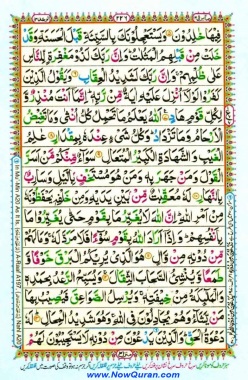 ٢٢٦
فِيْهَا خٰلِدُوْنَ وَيَسْتَعْجِلُوْنَكَ بِالسَّيِّئَةِ قَبْلَ الْحَسَنَةِ وَقَدْ
خَلَتْ مِنْ قَبْلِهِمُ الْمَثُلٰتُ وَاِنَّ رَبَّكَ لَذُوْ مَغْفِرَةٍ لِّلنَّاسِ
عَلٰى ظُلْمِهِمْ وَاِنَّ رَبَّكَ لَشَدِيْدُ الْعِقَابِ وَيَقُوْلُ الَّذِيْنَ
كَفَرُوْا لَوْلَاۤ اُنْزِلَ عَلَيْهِ اٰيَةٌ مِّنْ رَّبِّهٖ اِنَّمَاۤ اَنْتَ مُنْذِرٌ وَّ
لِكُلِّ قَوْمٍ هَادٍ اَللّٰهُ يَعْلَمُ مَا تَحْمِلُ كُلُّ اُنْثٰى وَمَا تَغِيْضُ
الْاَرْحَامُ وَمَا تَزْدَادُ وَكُلُّ شَیْءٍ عِنْدَهٗ بِمِقْدَارٍ عٰلِمُ
الْغَيْبِ وَالشَّهَادَةِ الْكَبِيْرُ الْمُتَعَالِ سَوَآءٌ مِّنْكُمْ مَّنْ اَسَرَّ
الْقَوْلَ وَمَنْ جَهَرَ بِهٖ وَمَنْ هُوَ مُسْتَخْفٍۭ بِالَّيْلِ وَسَارِبٌۢ
بِالنَّهَارِ لَهٗ مُعَقِّبٰتٌ مِّنْۢ بَيْنِ يَدَيْهِ وَمِنْ خَلْفِهٖ يَحْفَظُوْنَهٗ
مِنْ اَمْرِ اللّٰهِ اِنَّ اللّٰهَ لَا يُغَيِّرُ مَا بِقَوْمٍ حَتّٰى يُغَيِّرُوْا مَا
بِاَنْفُسِهِمْ وَاِذَاۤ اَرَادَ اللّٰهُ بِقَوْمٍ سُوْٓءًا فَلَا مَرَدَّ لَهٗ وَمَا لَهُمْ
مِّنْ دُوْنِهٖ مِنْ وَّالٍ هُوَ الَّذِیْ يُرِيْكُمُ الْبَرْقَ خَوْفًا وَّ
طَمَعًا وَّيُنْشِئُ السَّحَابَ الثِّقَالَ وَيُسَبِّحُ الرَّعْدُ بِحَمْدِهٖ
وَالْمَلٰٓئِكَةُ مِنْ خِيْفَتِهٖ وَيُرْسِلُ الصَّوَاعِقَ فَيُصِيْبُ بِهَا
مَنْ يَّشَآءُ وَهُمْ يُجَادِلُوْنَ فِی اللّٰهِ وَهُوَ شَدِيْدُ الْمِحَالِ لَهٗ
دَعْوَةُ الْحَقِّ وَالَّذِيْنَ يَدْعُوْنَ مِنْ دُوْنِهٖ لَا يَسْتَجِيْبُوْنَ
www.NowQuran.com